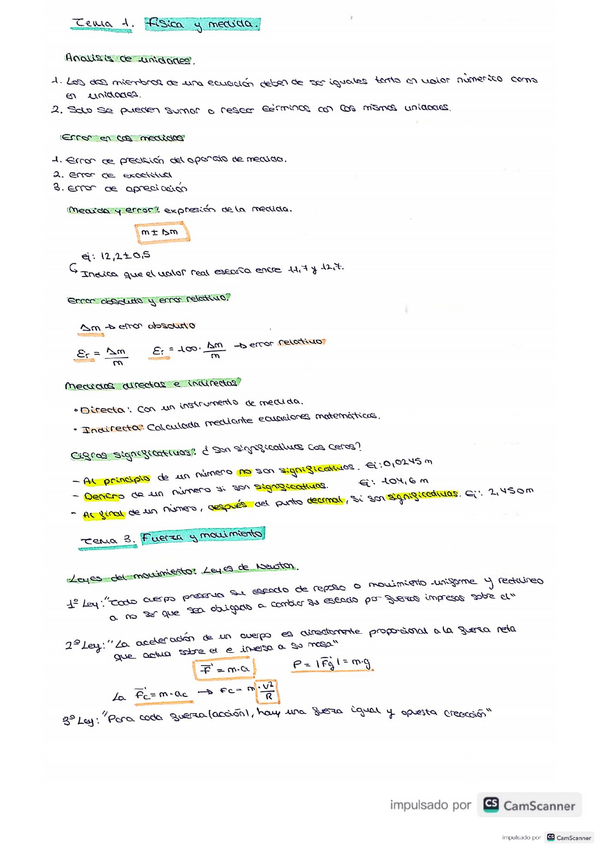 Tema 1. Física y medida.
Análisis de unidades.
1. Los dos miembros de una ecuación deben de ser iguales tanto en valor númerico como
en unidades.
2. Solo se pueden sumar o restar términos con los mismos unidades.
Error en las medidas
1. Error de precisión del aparato de medida.
2. error de exactitud
3. Error de apreciación
Medida y error: expresión de la medida.
m ± Δm
ej: 12,2±0,5
↳ Indica que el valor real estaría entre 11,7 y 12,7.
Error absoluto y error relativo:
Δm → error absoluto
Er = Δm/m    Er = 100· Δm/m → error relativo
Medidas directas e indirectas:
• Directa: Con un instrumento de medida.
• Indirecta: Calculada mediante ecuaciones matemáticas.
Cifras significativas: ¿Son significativos los ceros?
- Al principio de un número no son significativos. Ej: 0,0245 m
- Dentro de un número si son significativos. Ej: 104,6 m
- Al final de un número, después del punto decimal, si son significativos. Ej: 2,450m
Tema 3. Fuerza y movimiento
Leyes del movimiento: Leyes de Newton.
1ª Ley: "Todo cuerpo preserva su estado de reposo o movimiento uniforme y rectilineo
a no ser que sea obligado a cambiar su estado por fuerzas impresas sobre él"
2ª Ley: "La aceleración de un cuerpo es directamente proporcional a la fuerza neta
que actua sobre el e inversa a su masa"
F = m·a    P = |Fg| = m·g
La Fc = m·ac → Fc = m·V²/R
3ª Ley: "Para cada fuerza (acción), hay una fuerza igual y opuesta (reacción)"
impulsado por CS CamScanner
impulsado por CS CamScanner